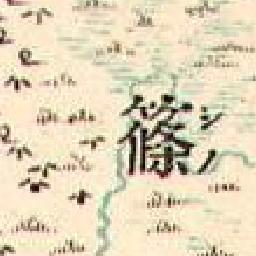 篠
シノ